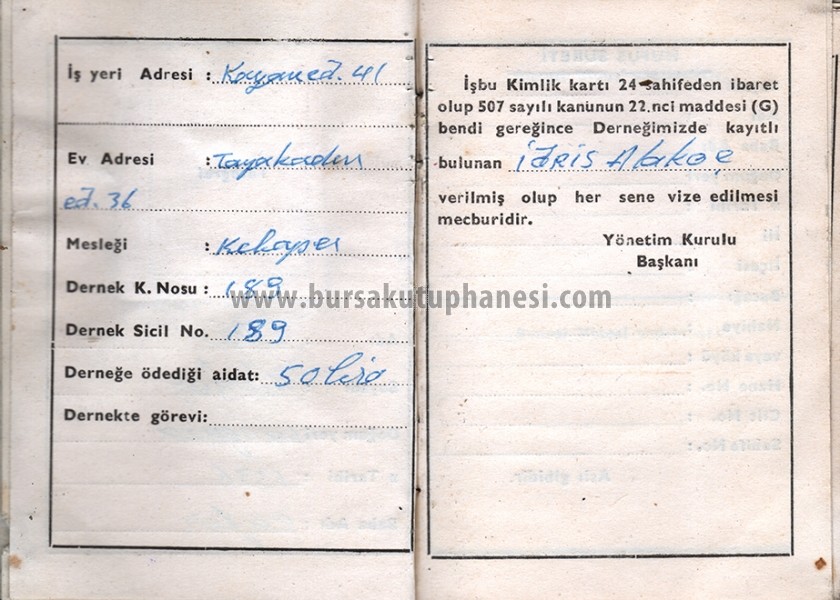 İş yeri Adresi : Kayan cd. 41
Ev Adresi : Tayakadın
cd. 36
Mesleği :
Dernek K. Nosu : 189
Dernek Sicil No. 189
Derneğe ödediği aidat: 50 lira
Dernekte görevi:
İşbu Kimlik kartı 24 sahifeden ibaret
olup 507 sayılı kanunun 22.nci maddesi (G)
bendi gereğince Derneğimizde kayıtlı
bulunan İdris Alakoç
verilmiş olup her sene vize edilmesi
mecburidir.
Yönetim Kurulu
Başkanı
www.bursakutuphanesi.com